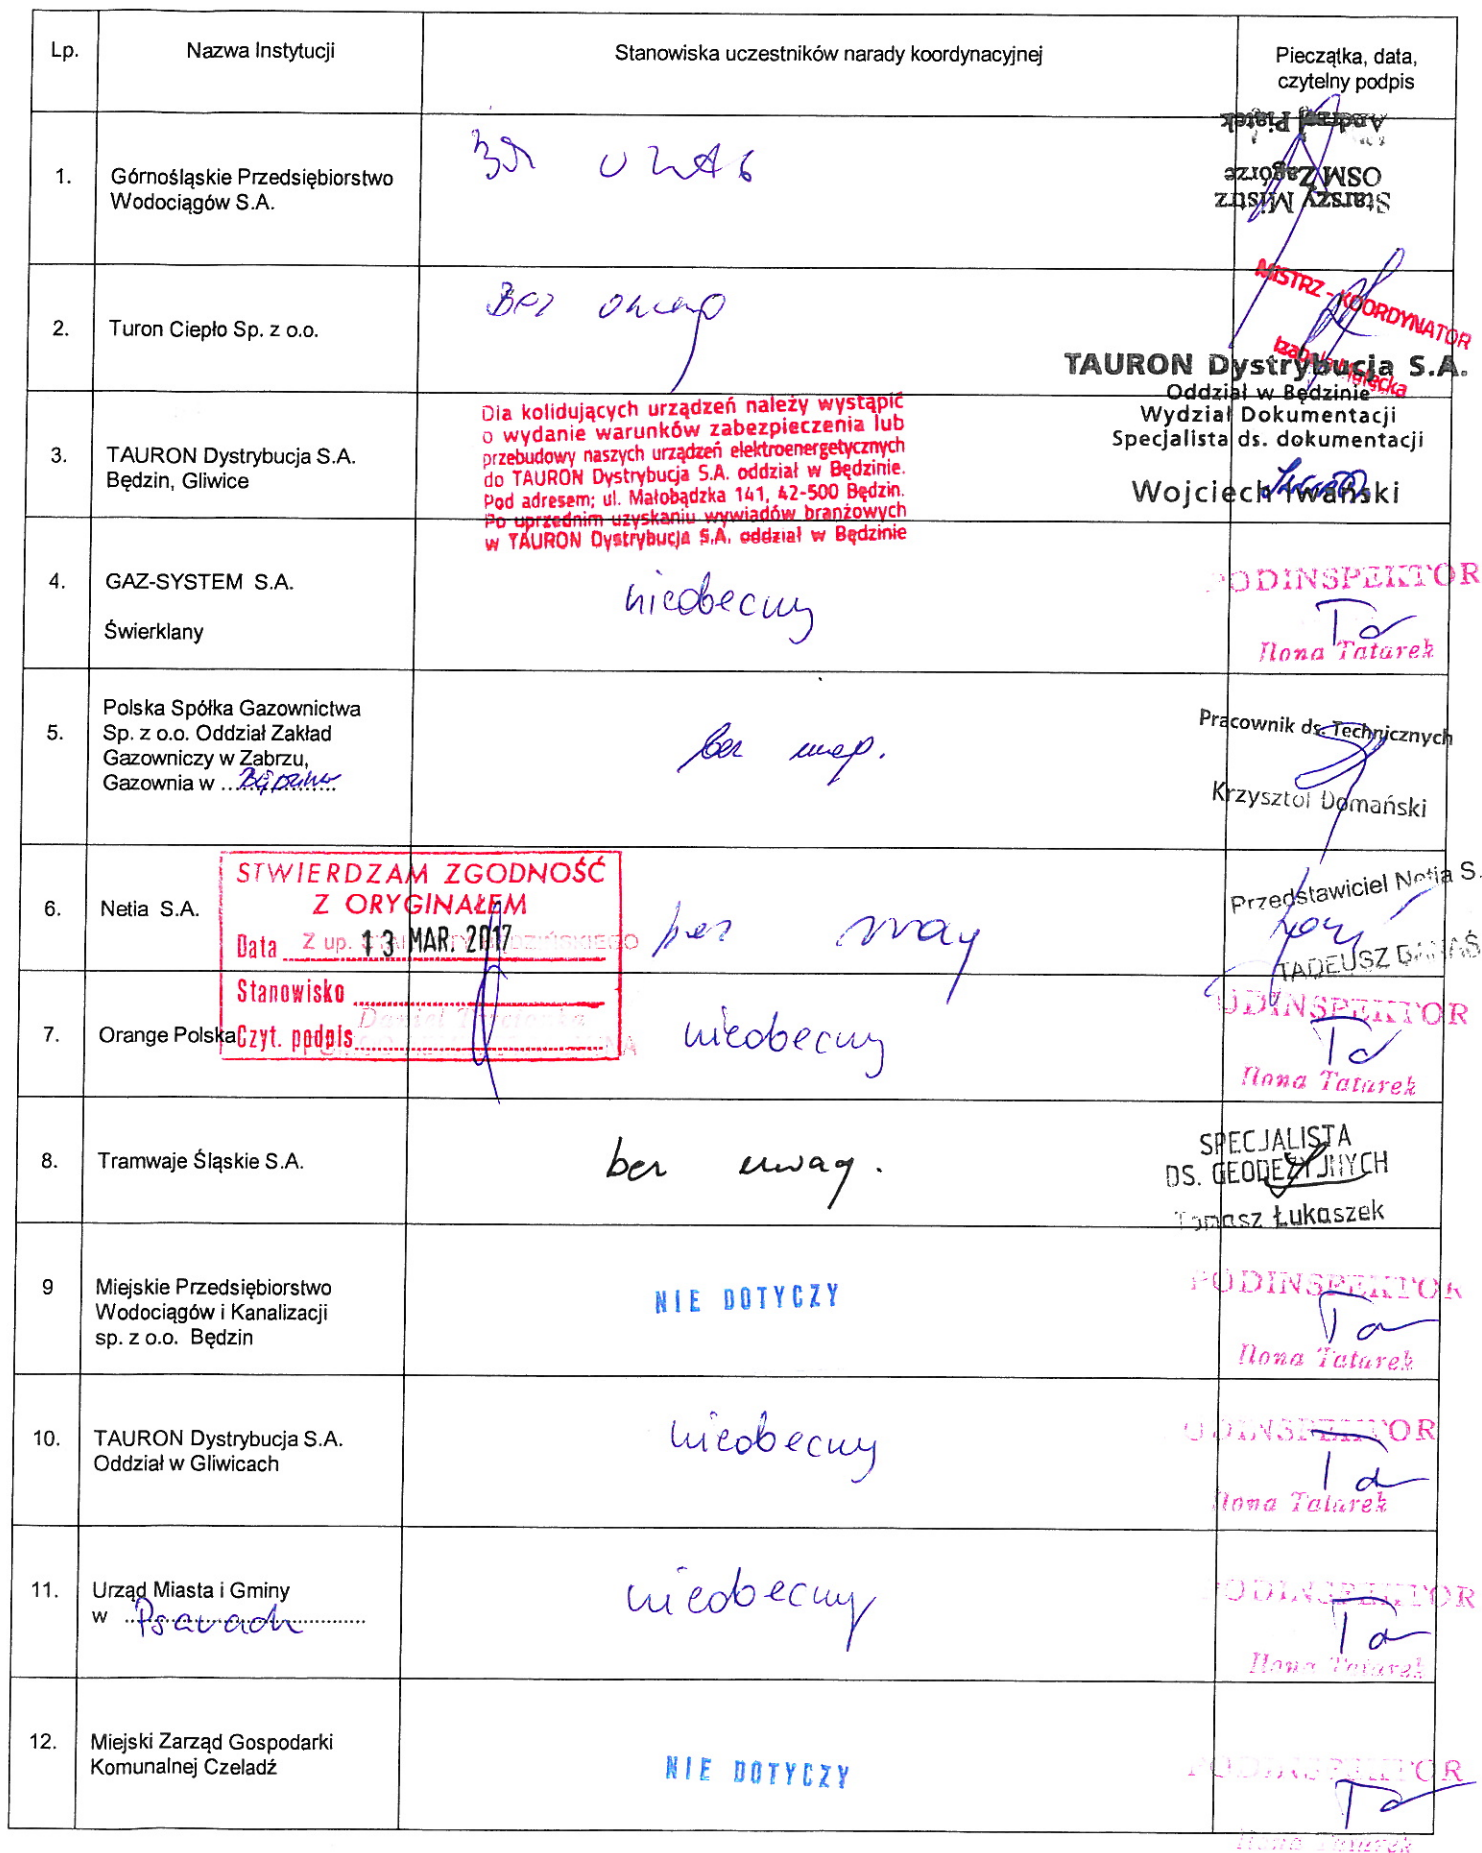 Lp.
Nazwa Instytucji
Stanowiska uczestników narady koordynacyjnej
Pieczątka, data,
czytelny podpis
1.
Górnośląskie Przedsiębiorstwo
Wodociągów S.A.
Starszy Mistrz
OSM Zagórze
Andrzej Piątek
2.
Turon Ciepło Sp. z o.o.
Bez
MISTRZ - KOORDYNATOR
3.
TAURON Dystrybucja S.A.
Będzin, Gliwice
Dla kolidujących urządzeń należy wystąpić
o wydanie warunków zabezpieczenia lub
przebudowy naszych urządzeń elektroenergetycznych
do TAURON Dystrybucja S.A. oddział w Będzinie.
Pod adresem; ul. Małobądzka 141, 42-500 Będzin.
Po uprzednim uzyskaniu wywiadów branżowych
w TAURON Dystrybucja S.A. oddział w Będzinie
TAURON Dystrybucja S.A.
Oddział w Będzinie
Wydział Dokumentacji
Specjalista ds. dokumentacji
Wojciech Iwański
4.
GAZ-SYSTEM S.A.
Świerklany
nieobecny
PODINSPEKTOR
Ilona Tatarek
5.
Polska Spółka Gazownictwa
Sp. z o.o. Oddział Zakład
Gazowniczy w Zabrzu,
Gazownia w
bez uwag.
Pracownik ds. Technicznych
Krzysztof Domański
6.
Netia S.A.
STWIERDZAM ZGODNOŚĆ
Z ORYGINAŁEM
Data Z up. 13 MAR. 2017
Stanowisko
Czyt. podpis
bez uwag
Przedstawiciel Netia S.
TADEUSZ
7.
Orange Polska
nieobecny
PODINSPEKTOR
Ilona Tatarek
8.
Tramwaje Śląskie S.A.
bez uwag.
SPECJALISTA
DS. GEODEZYJNYCH
Tomasz Łukaszek
9
Miejskie Przedsiębiorstwo
Wodociągów i Kanalizacji
sp. z o.o. Będzin
NIE DOTYCZY
PODINSPEKTOR
Ilona Tatarek
10.
TAURON Dystrybucja S.A.
Oddział w Gliwicach
nieobecny
PODINSPEKTOR
Ilona Tatarek
11.
Urząd Miasta i Gminy
w Psarach
nieobecny
PODINSPEKTOR
Ilona Tatarek
12.
Miejski Zarząd Gospodarki
Komunalnej Czeladź
NIE DOTYCZY
PODINSPEKTOR
Ilona Tatarek